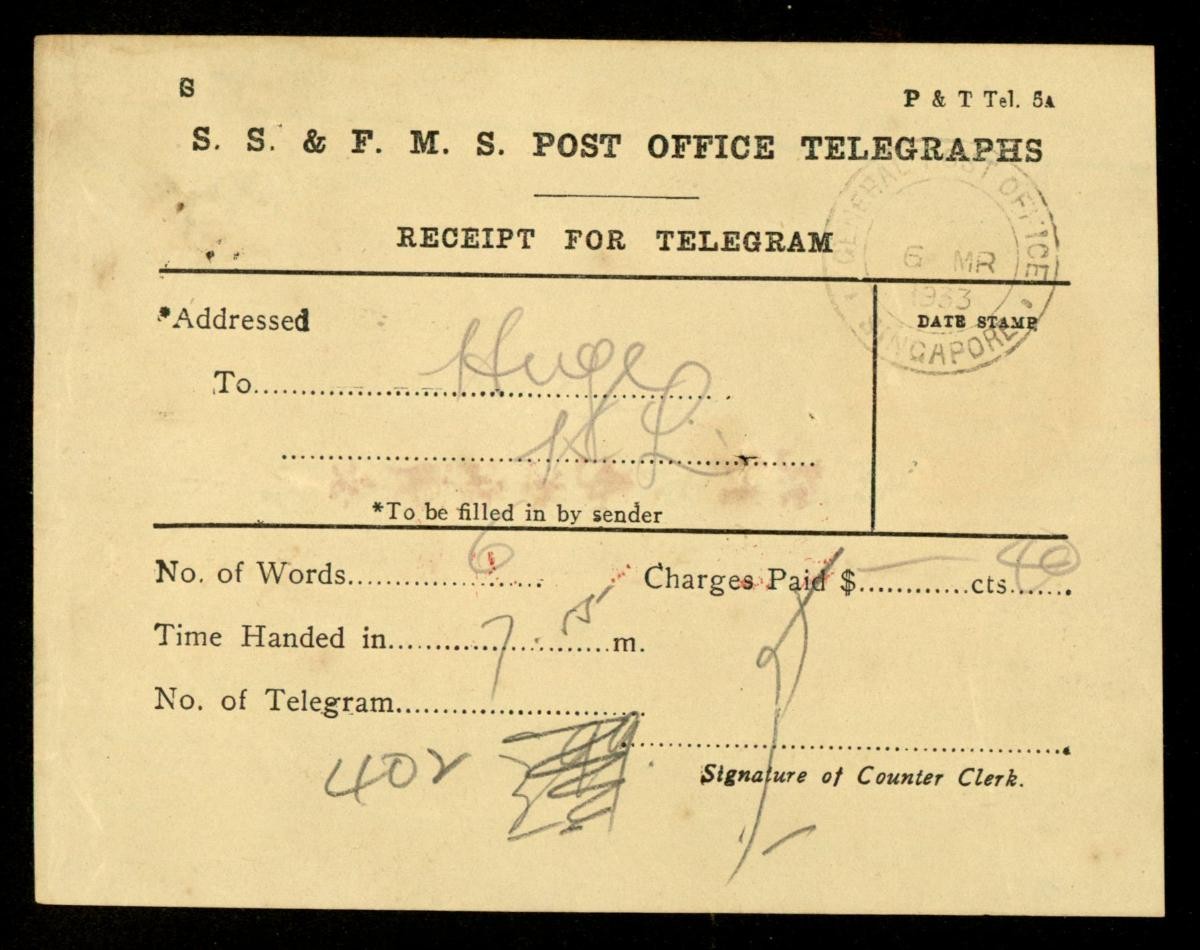 S
P & T Tel. 5A
S. S. & F. M. S. POST OFFICE TELEGRAPHS
RECEIPT FOR TELEGRAM
GENERAL POST OFFICE
6 MR
1933
SINGAPORE
DATE STAMP
*Addressed
To Huge
KL
*To be filled in by sender
No. of Words 6 Charges Paid $ — cts 40
Time Handed in 7. m.
No. of Telegram
402
Signature of Counter Clerk.